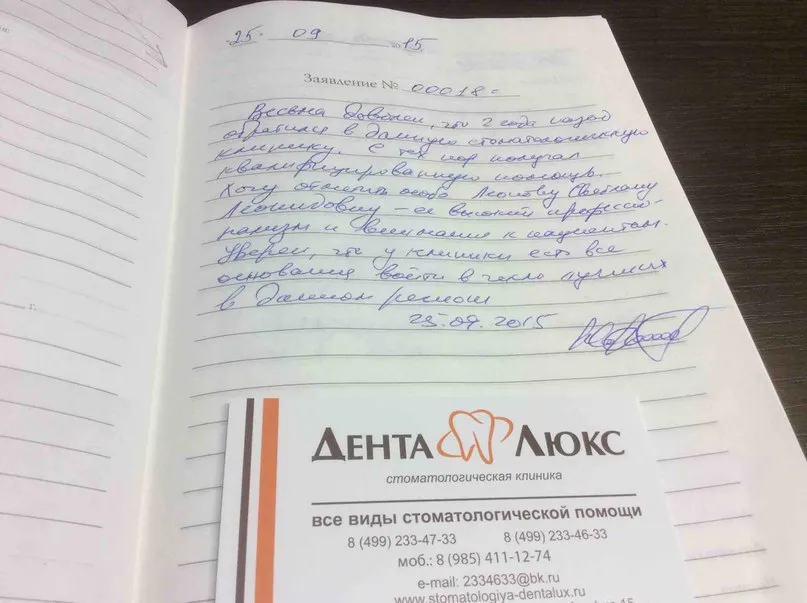 25. 09 2015
Заявление № 00018=
Весьма доволен, что 2 года назад
обратился в данную стоматологическую
клинику. С тех пор получал
квалифицированную помощь.
Хочу отметить особо Леонову Светлану
Леонидовну – её высокий професси-
нализм и внимание к пациентам.
Уверен, что у клиники есть все
основания войти в число лучших
в данном регионе
25.09.2015
г.
ДЕНТА ЛЮКС
стоматологическая клиника
все виды стоматологической помощи
8 (499) 233-47-33 8 (499) 233-46-33
моб.: 8 (985) 411-12-74
e-mail: 2334633@bk.ru
www.stomatologiya-dentalux.ru